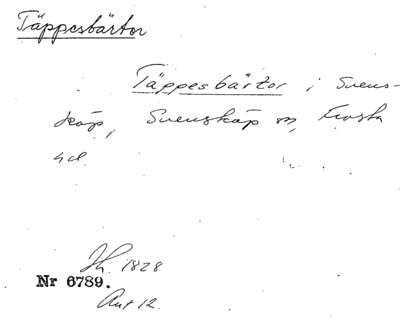 Täppesbärtor
Täppesbärtor i Svens-
köp, Svensköp sn, Frosta
hd.
Ih. 1828
Nr 6789.
Ant 12.